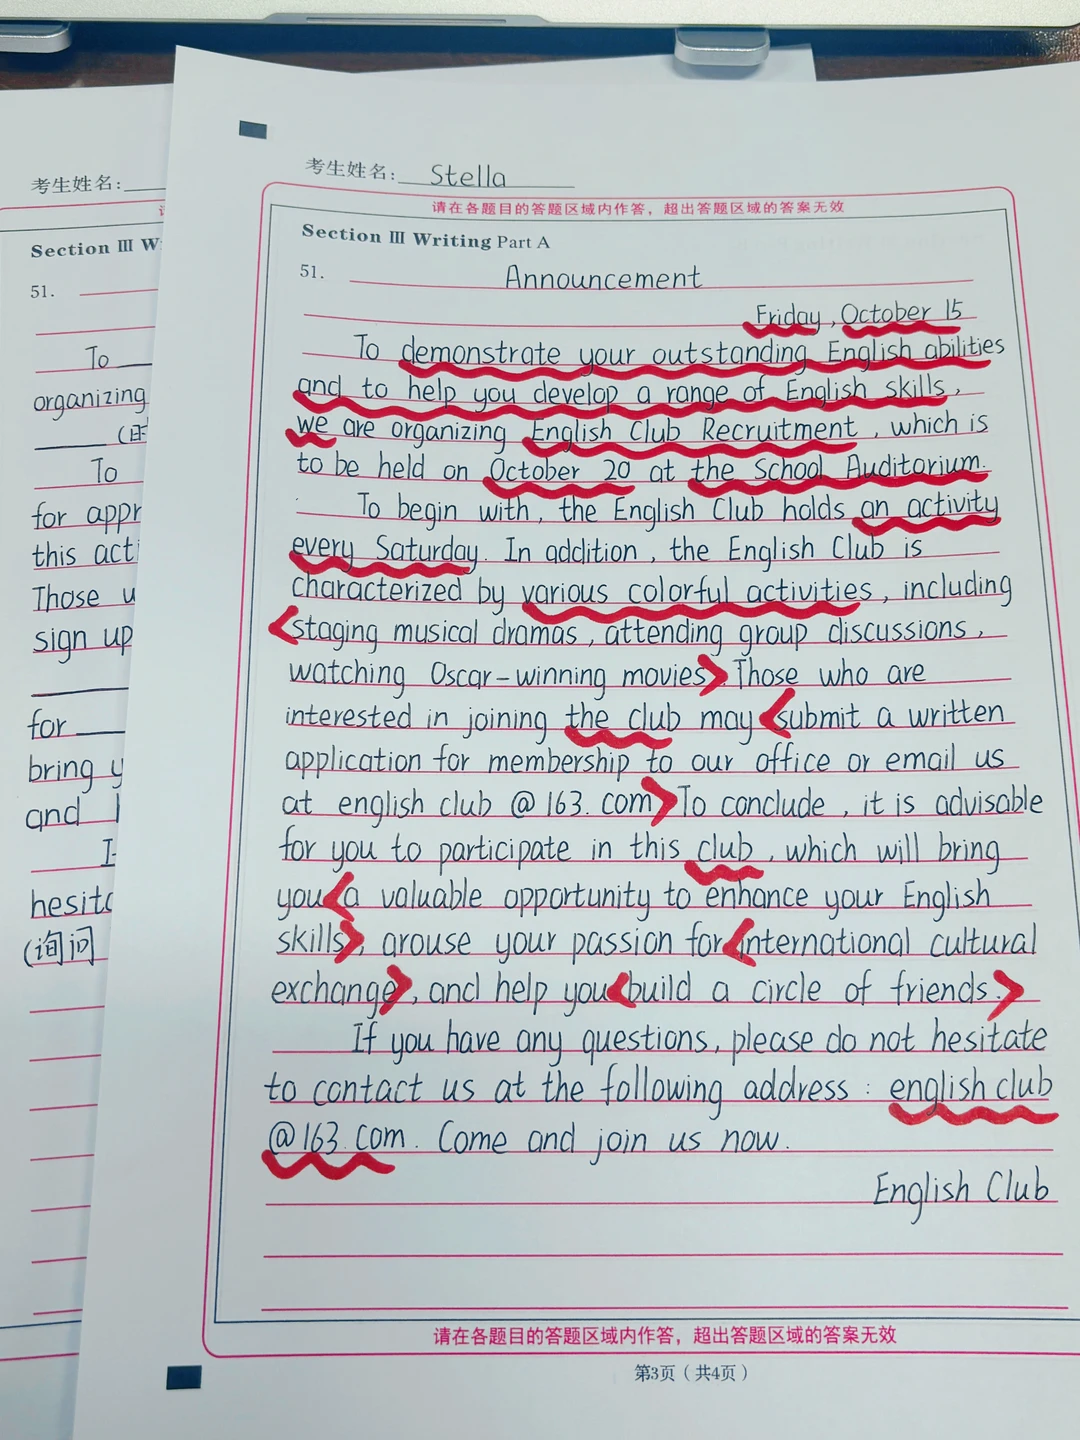 考生姓名:
Section Ⅲ W
51.
To
organizing
To
for appr
this acti
Those
sign up
for
bring y
and
hesita
(询问
考生姓名: Stella
请在各题目的答题区域内作答，超出答题区域的答案无效
Section Ⅲ Writing Part A
51. Announcement
Friday, October 15
To demonstrate your outstanding English abilities
and to help you develop a range of English skills,
we are organizing English Club Recruitment, which is
to be held on October 20 at the School Auditorium.
To begin with, the English Club holds an activity
every Saturday. In addition, the English Club is
characterized by various colorful activities, including
<staging musical dramas, attending group discussions,
watching Oscar-winning movies> Those who are
interested in joining the club may <submit a written
application for membership to our office or email us
at english club @ 163. com> To conclude, it is advisable
for you to participate in this club, which will bring
you <a valuable opportunity to enhance your English
skills>, arouse your passion for <international cultural
exchange>, and help you <build a circle of friends.>
If you have any questions, please do not hesitate
to contact us at the following address: english club
@ 163. com. Come and join us now.
English Club
请在各题目的答题区域内作答，超出答题区域的答案无效
第3页（共4页）